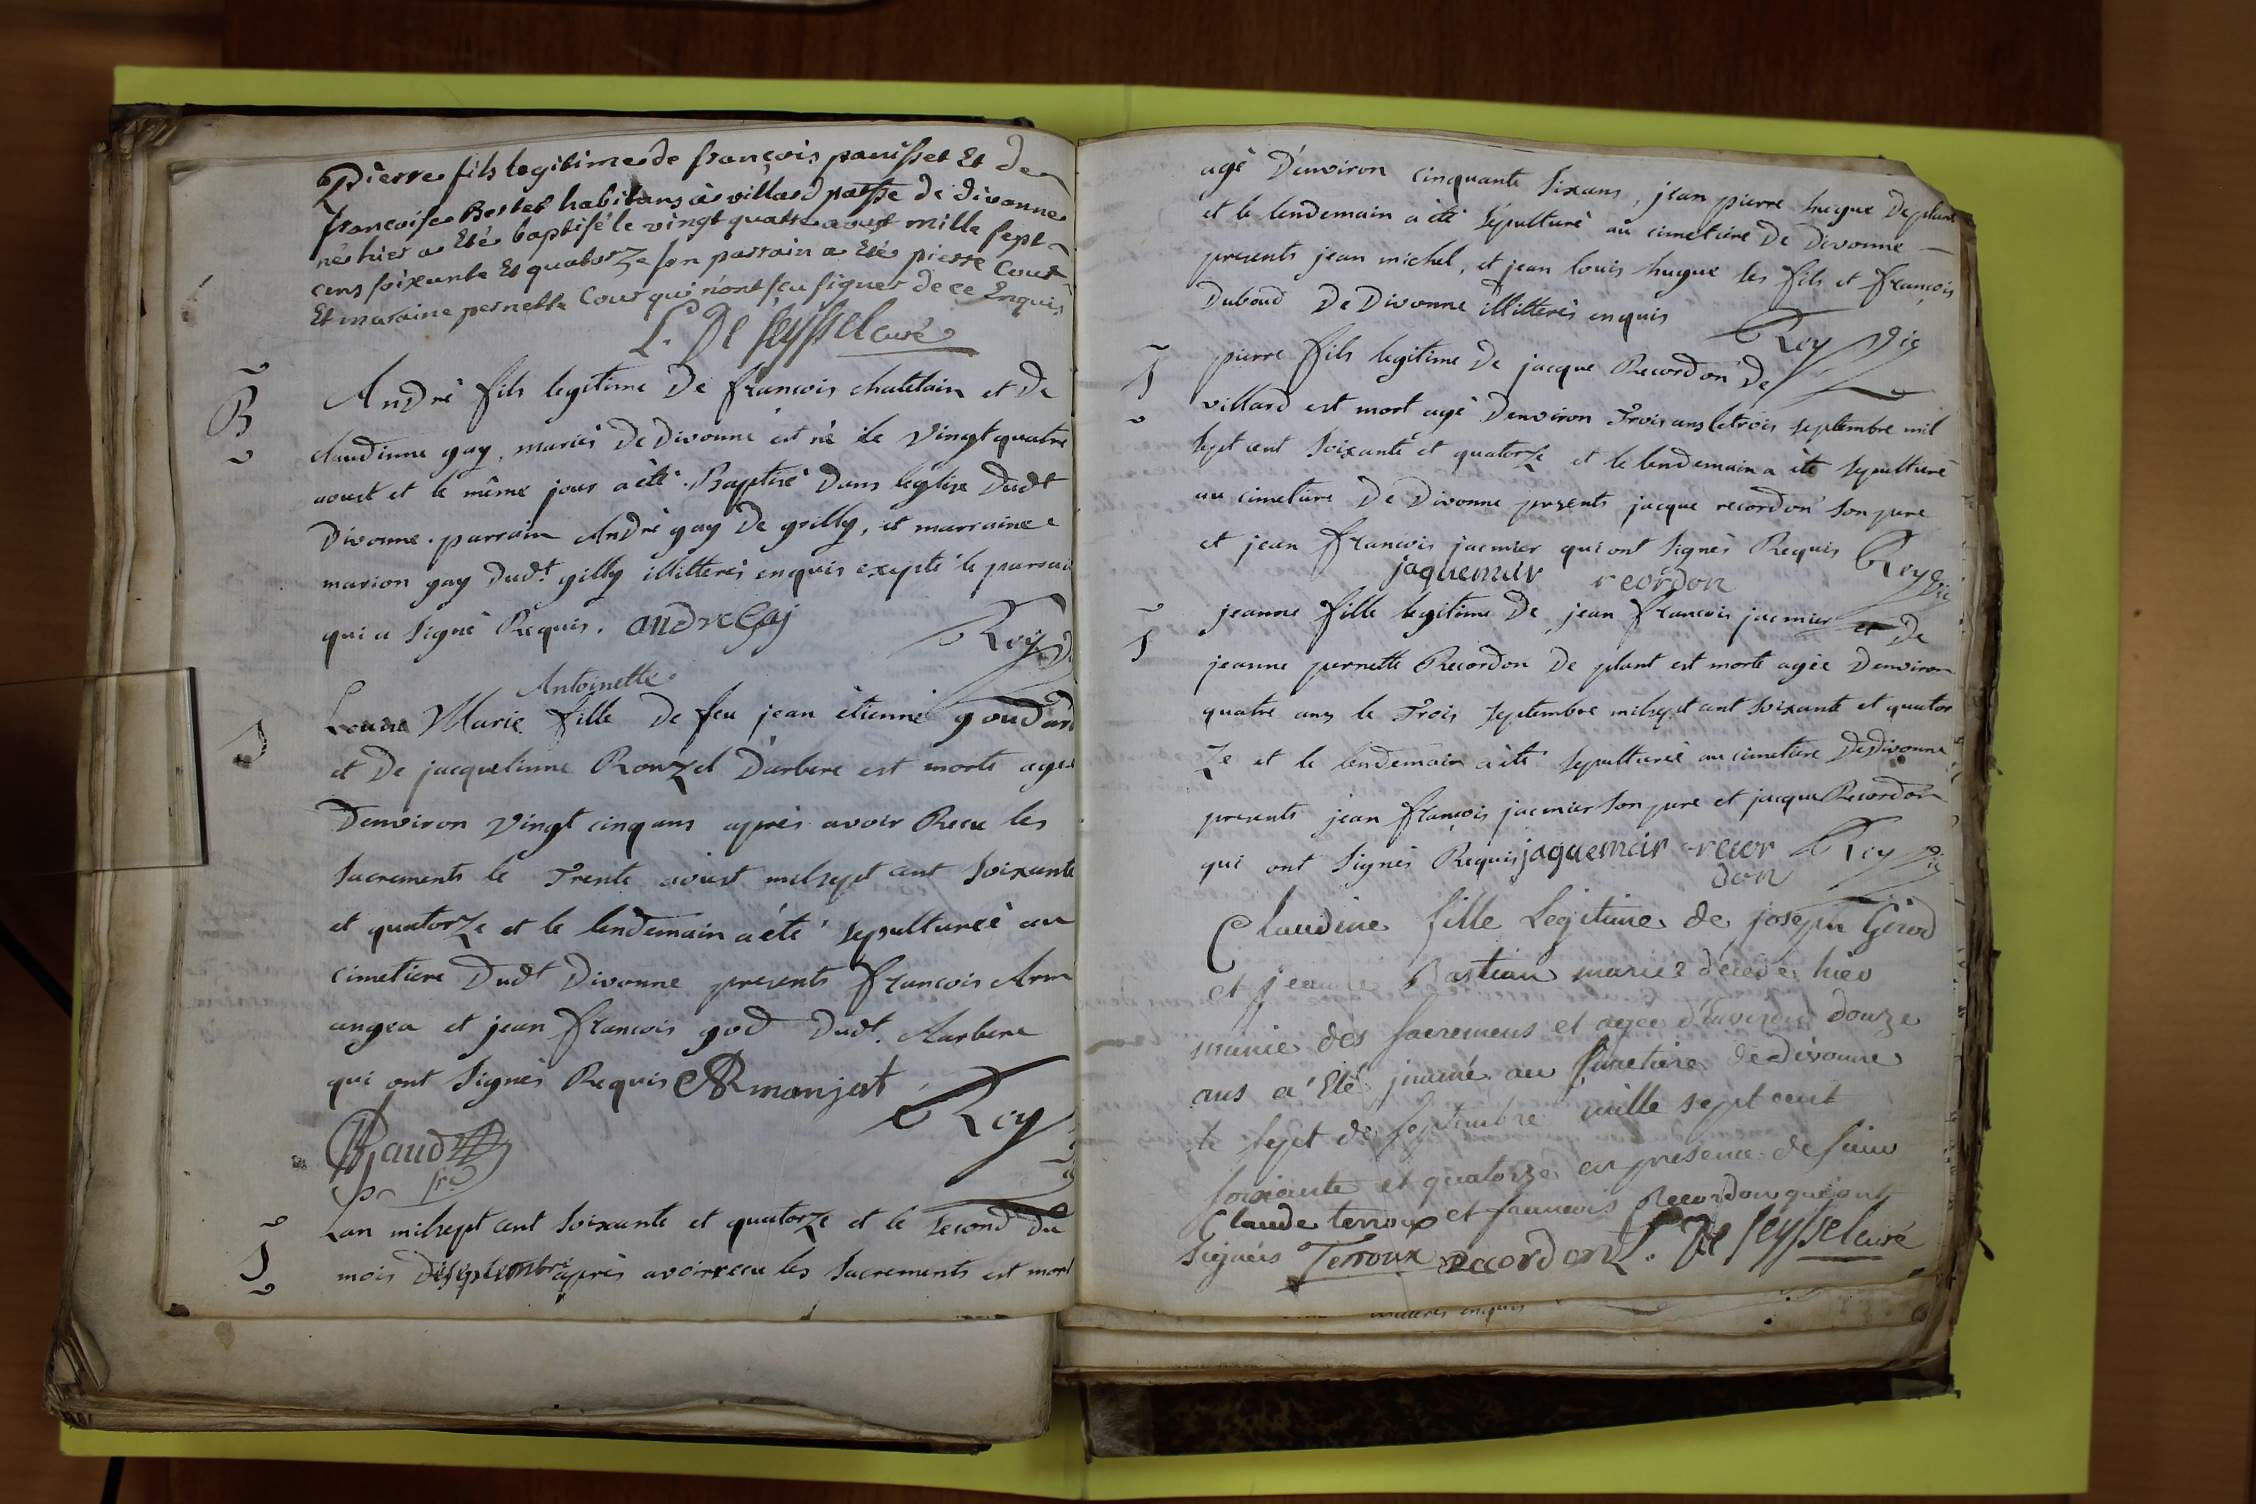 Pierre fils legitime de françois panisset Et de
françoise Bertet habitans a villard passe de divonne
né hier a Eté baptisé le vingt quatre aoust mille sept
cens soixante Et quatorze son parrain a Eté pierre Cour
Et maraine pernette Cour qui n'ont scu signer de ce Enquis
L. De seyssel curé
B
André fils legitime De francois chatelain et De
claudinne gay, mariés De Divonne est né ile Vingt quatre
aoust et le même jour a été Baptisé Dans léglise Dudt
Divonne. parrain André gay De grilly, et marraine
marion gay Dudt. gilly illitterés enquis exepté le parrai
qui a Signé Requis. andre Gaj
Rey
Antoinette
Louise Marie fille De feu jean étienne goudard
et De jacquelinne Rouzel D'arbere est morte agee
Denviron Vingt cinq ans aprés avoir Recu les
Sacrements le Trente aoust milsept cent Soixante
et quatorze et le lendemain a été sepulturéé au
cimetiere Dudt Divonne presents francois Arm
angea et jean francois god Dudt. Aarbere
qui ont Signés Requis ARmanjat
Rey
S
Lan milsept cent Soixante et quatorze et le second Du
mois Deseptembre aprés avoir recu les Sacrements est mort
agé D'environ cinquante Sixans, jean pierre hugue Deplant
et le lendemain a été Sépulturé au cimetiere De Divonne
presents jean michel, et jean louis hugue les fils et françois
Duboud De Divonne illitterés enquis
Rey Vic
S
pierre fils legitime De jacque Recordon De
villard est mort agé Denviron Trois ans le trois septembre mil
sept cent Soixante et quatorze et le lendemain a été sepulturé
au cimetiere De Divonne presents jacque recordon Son pere
et jean francois jacmier qui ont Signés Requis Rey Vic
jaquemier recordon
S
jeanne fille legitime De jean francois jacmier et De
jeanne pernette Recordon De plant est morte agée Denviron
quatre ans le Trois septembre milsept cent soixante et quator
Ze et le lendemain a été sepulturéé au cimetiere De Divonne
presents jean françois jacmier Son pere et jacque Recordon
qui ont Signés Requis jaquemier recor Rey Vic
don
Claudine fille Legitime de joseph Girod
et jeanne Bastian mariez décédé hier
munie des sacremens et agée d'environ douze
ans a Eté inumé au simetiere de divonne
le sept de septembre mille sept cent
soixante et quatorze en presence de sieur
Claude terroux et francois Recordon qui ont
signés Terroux recordon L. De seyssel curé